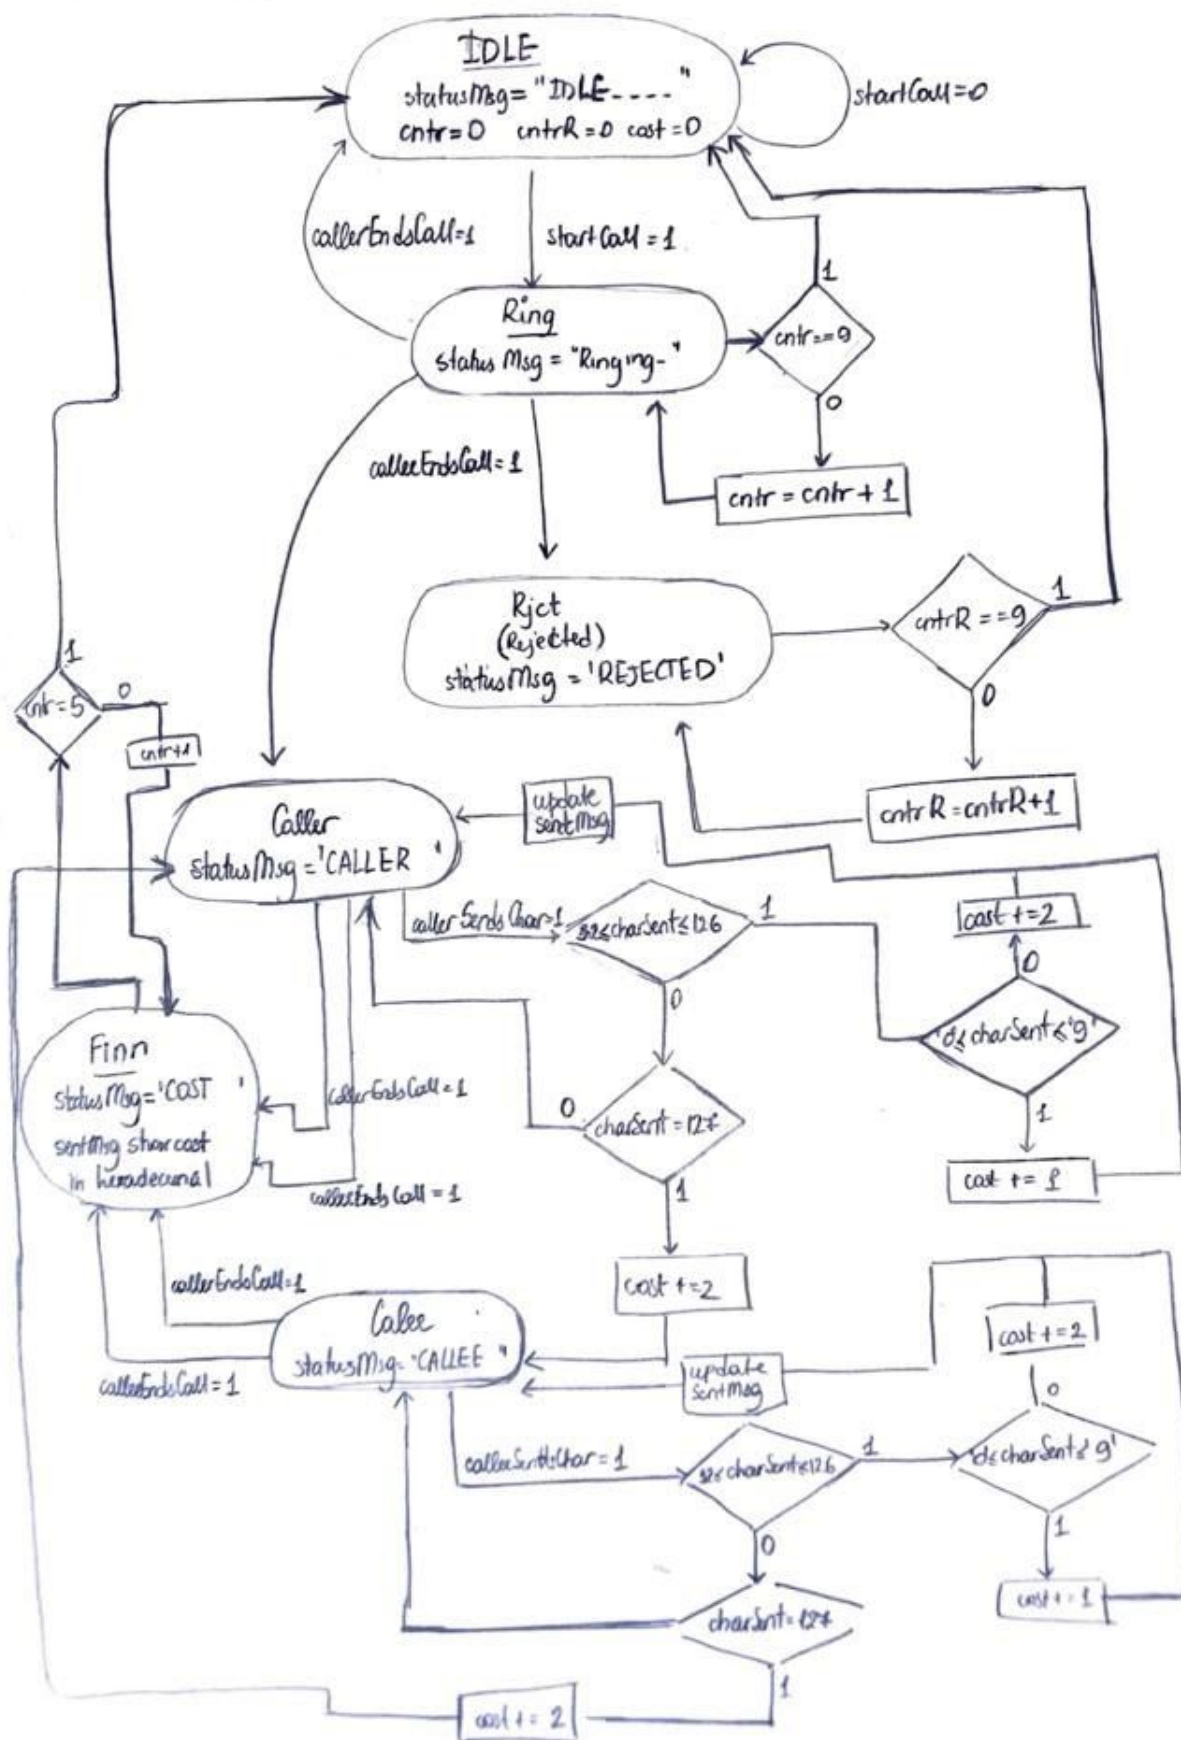 IDLE
statusMsg= "IDLE----"
cntr=0 cntrR=0 cost=0
startCall=0
callerEndsCall=1
startCall=1
Ring
status Msg = "Ringing-"
cntr==9
1
0
calleeEndsCall=1
cntr = cntr + 1
Rjct
(Rejected)
statusMsg = 'REJECTED'
cntrR==9
1
0
cntrR=cntrR+1
cntr=5
1
0
cntr+1
Caller
statusMsg='CALLER '
update
sentMsg
callerSendsChar=1
32≤charSent≤126
1
0
cost+=2
0
'0≤charSent≤'9'
1
cost += 1
charSent=127
0
1
cost+=2
Finn
statusMsg='COST '
sentMsg show cost
in hexadecimal
callerEndsCall=1
calleeEndsCall=1
callerEndsCall=1
calleeEndsCall=1
Calee
statusMsg="CALLEE "
update
sentMsg
cost+=2
0
calleeSendsChar=1
32≤charSent≤126
1
'0≤charSent≤'9'
0
1
cost+=1
charSent=127
1
cost+= 2